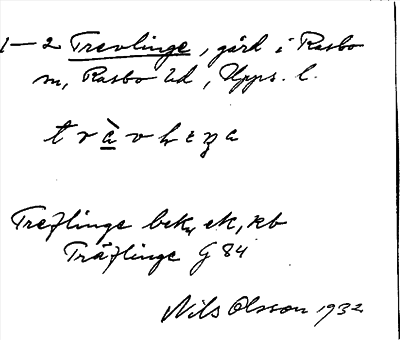 1–2 Trevlinge, gård i Rasbo
sn, Rasbo hd, Upps. l.
Treflinge bek, ek, kb
Träflinge G 84
Nils Olsson 1932